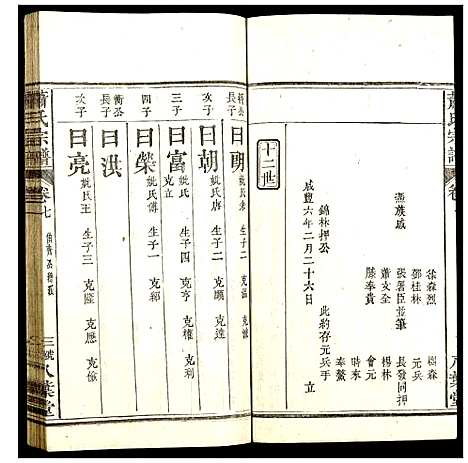 蕭氏宗譜
卷
八葉堂
徐森烈
樹森
鄧桂林
元兵
憑族戚
張署臣並筆
長發同
蕭文全
楊林
滕奉貴
會元
時來
奉鰲
錦林押公
此約存元兵手
立
咸豐六年二月二十六日
十二世
長子
曰朝
姚氏
生子二
克
次子
曰朝
姚氏唐
生子二
克順
克達
三子
曰富
姚氏
生子四
克亨
克權
克利
克立
四子
曰榮
姚氏傅
生子一
克郁
長子
曰洪
次子
曰亮
姚氏王
生子三
克隆
克應
克儉
蕭氏宗譜
卷七
三號
八葉堂